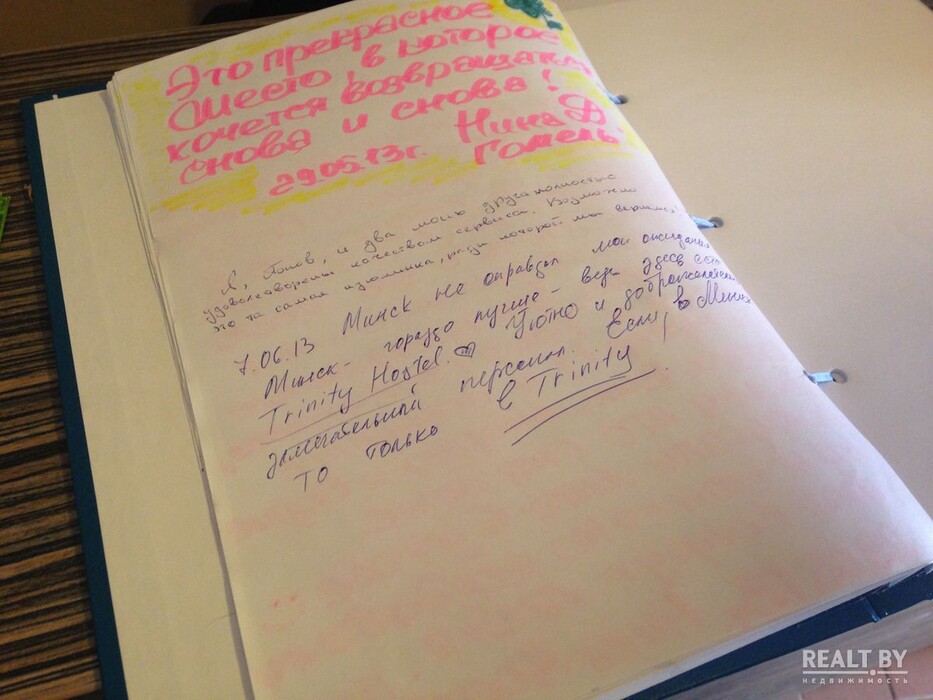 Это прекрасное
место, в которое
хочется возвращаться
снова и снова!
Нина Д
29.05.13г. Гомель.
Я, и два моих друга полностью
удовлетворены качеством сервиса. Возможно
это та самая изюминка, ради которой мы вернёмся!
7.06.13 Минск не оправдал мои ожидания
Минск - гораздо лучше - ведь здесь есть
Trinity Hostel. Уютно и доброжелательно
замечательный персонал. Если, в Минск
то только в Trinity!
REALT.BY
недвижимость